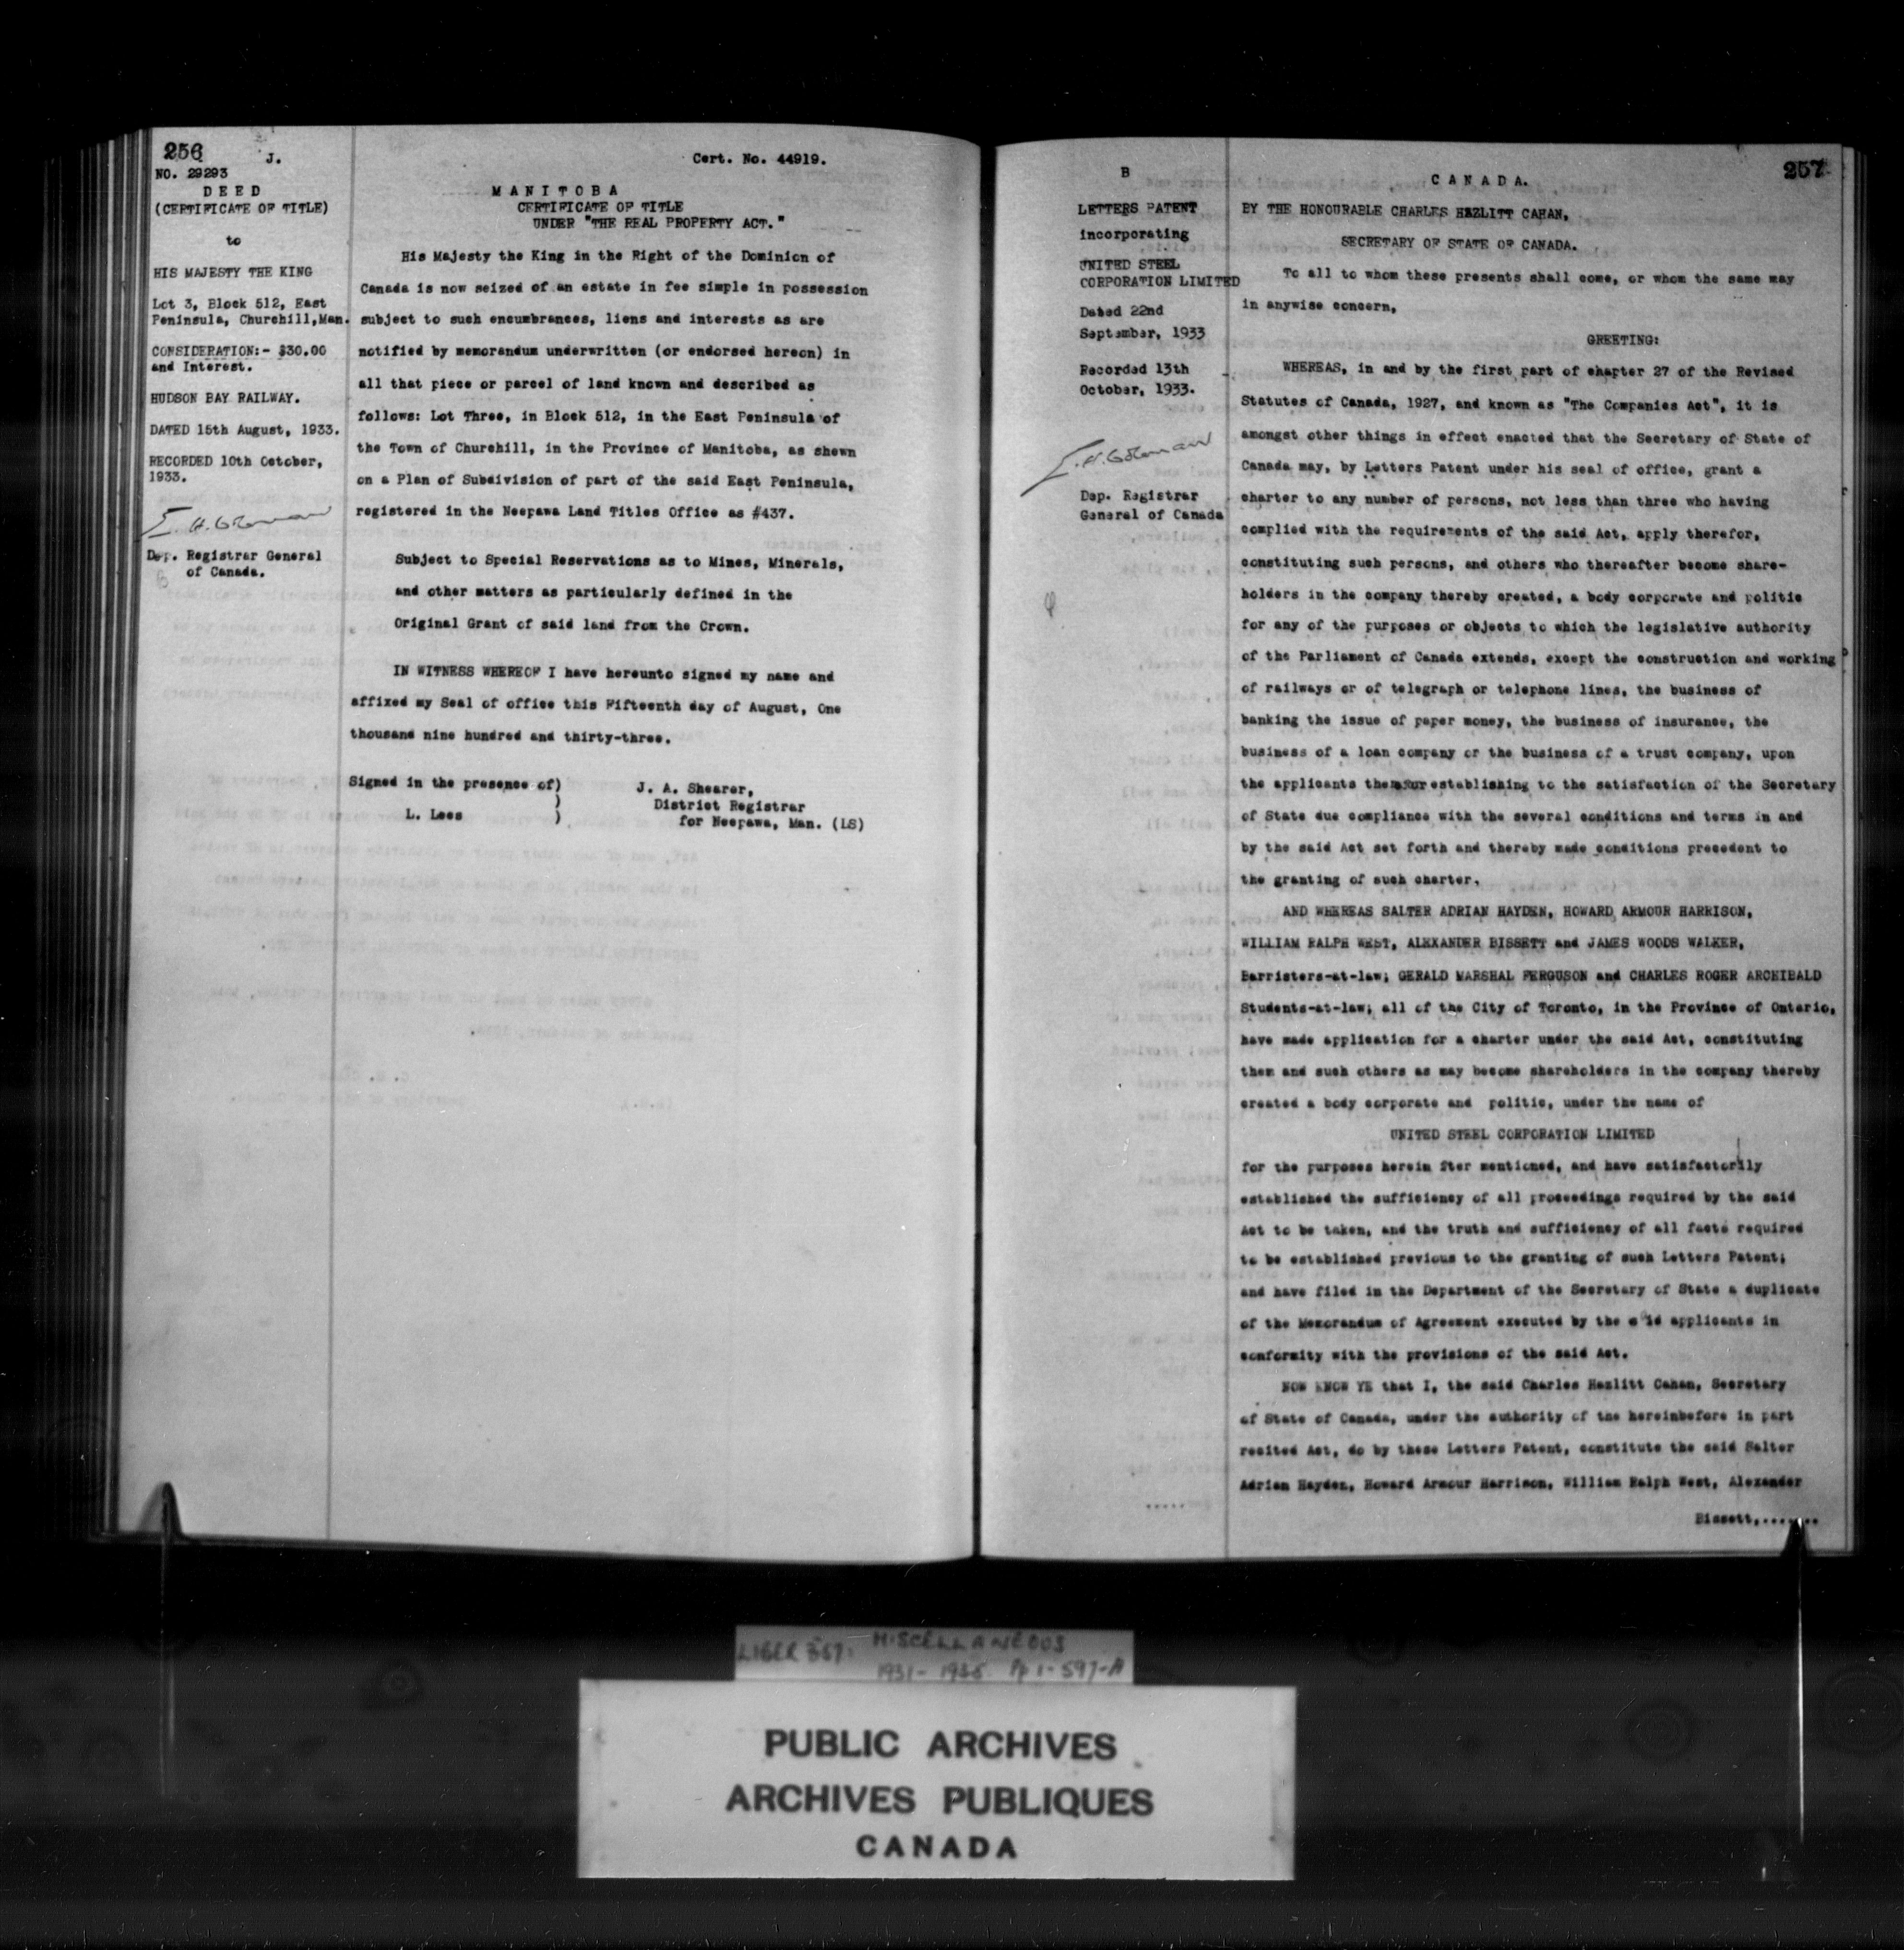 256
J.
NO. 29293
DEED
(CERTIFICATE OF TITLE)
to
HIS MAJESTY THE KING
Lot 3, Block 512, East
Peninsula, Churchill, Man.
CONSIDERATION:- $30.00
and Interest.
HUDSON BAY RAILWAY.
DATED 15th August, 1933.
RECORDED 10th October,
1933.
E. H. Coleman
Dep. Registrar General
of Canada.
Cert. No. 44919.
MANITOBA
CERTIFICATE OF TITLE
UNDER "THE REAL PROPERTY ACT."
His Majesty the King in the Right of the Dominion of
Canada is now seized of an estate in fee simple in possession
subject to such encumbrances, liens and interests as are
notified by memorandum underwritten (or endorsed hereon) in
all that piece or parcel of land known and described as
follows: Lot Three, in Block 512, in the East Peninsula of
the Town of Churchill, in the Province of Manitoba, as shewn
on a Plan of Subdivision of part of the said East Peninsula,
registered in the Neepawa Land Titles Office as #437.
Subject to Special Reservations as to Mines, Minerals,
and other matters as particularly defined in the
Original Grant of said land from the Crown.
IN WITNESS WHEREOF I have hereunto signed my name and
affixed my Seal of office this Fifteenth day of August, One
thousand nine hundred and thirty-three.
Signed in the presence of)
)
L. Lees )
J. A. Shearer,
District Registrar
for Neepawa, Man. (LS)
257
B
LETTERS PATENT
incorporating
UNITED STEEL
CORPORATION LIMITED
Dated 22nd
September, 1933
Recorded 13th
October, 1933.
E. H. Coleman
Dep. Registrar
General of Canada
CANADA.
BY THE HONOURABLE CHARLES HAZLITT CAHAN,
SECRETARY OF STATE OF CANADA.
To all to whom these presents shall come, or whom the same may
in anywise concern,
GREETING:
WHEREAS, in and by the first part of chapter 27 of the Revised
Statutes of Canada, 1927, and known as "The Companies Act", it is
amongst other things in effect enacted that the Secretary of State of
Canada may, by Letters Patent under his seal of office, grant a
charter to any number of persons, not less than three who having
complied with the requirements of the said Act, apply therefor,
constituting such persons, and others who thereafter become share-
holders in the company thereby created, a body corporate and politic
for any of the purposes or objects to which the legislative authority
of the Parliament of Canada extends, except the construction and working
of railways or of telegraph or telephone lines, the business of
banking the issue of paper money, the business of insurance, the
business of a loan company or the business of a trust company, upon
the applicants therefor establishing to the satisfaction of the Secretary
of State due compliance with the several conditions and terms in and
by the said Act set forth and thereby made conditions precedent to
the granting of such charter.
AND WHEREAS SALTER ADRIAN HAYDEN, HOWARD ARMOUR HARRISON,
WILLIAM RALPH WEST, ALEXANDER BISSETT and JAMES WOODS WALKER,
Barristers-at-law; GERALD MARSHAL FERGUSON and CHARLES ROGER ARCHIBALD
Students-at-law; all of the City of Toronto, in the Province of Ontario,
have made application for a charter under the said Act, constituting
them and such others as may become shareholders in the company thereby
created a body corporate and politic, under the name of
UNITED STEEL CORPORATION LIMITED
for the purposes herein fter mentioned, and have satisfactorily
established the sufficiency of all proceedings required by the said
Act to be taken, and the truth and sufficiency of all facts required
to be established previous to the granting of such Letters Patent;
and have filed in the Department of the Secretary of State a duplicate
of the Memorandum of Agreement executed by the said applicants in
conformity with the provisions of the said Act.
NOW KNOW YE that I, the said Charles Hazlitt Cahan, Secretary
of State of Canada, under the authority of the hereinbefore in part
recited Act, do by these Letters Patent, constitute the said Salter
Adrian Hayden, Howard Armour Harrison, William Ralph West, Alexander
Bissett,.......
LIBER 357: MISCELLANEOUS
1931-1935 Pp 1-597-A
PUBLIC ARCHIVES
ARCHIVES PUBLIQUES
CANADA